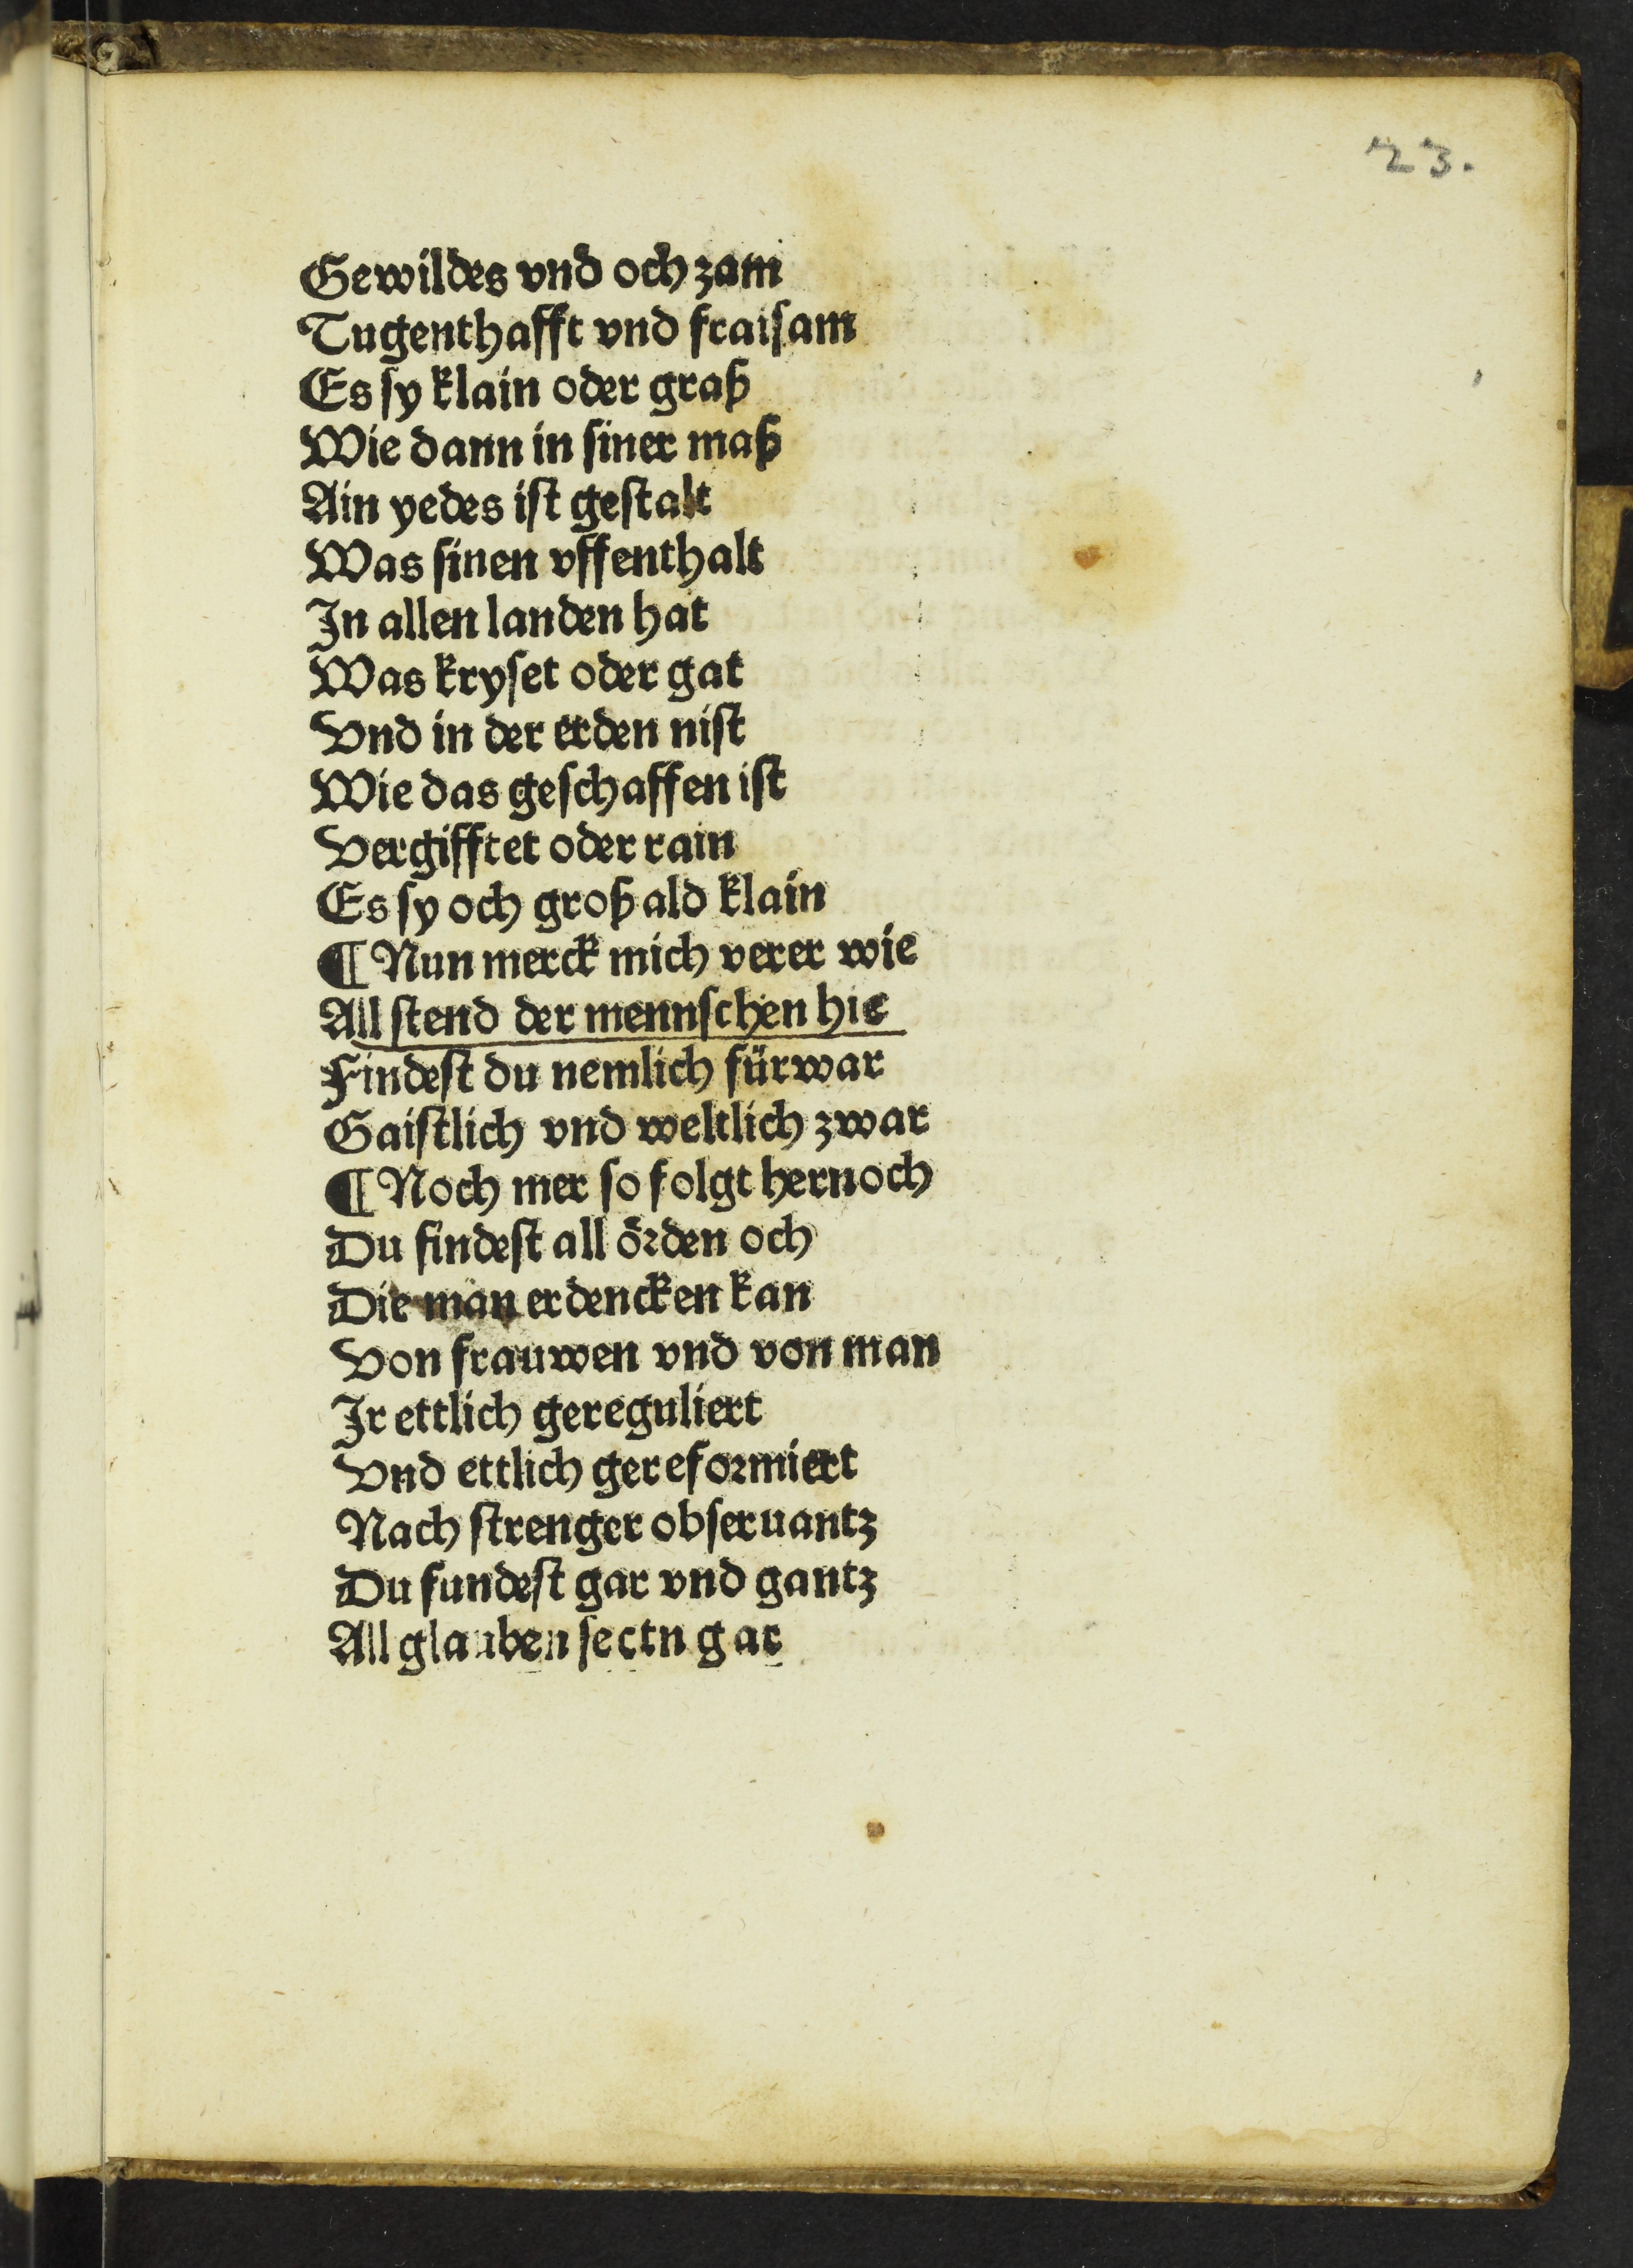 23.
Gewildes vnd och zam
Tugenthafft vnd fraisam
Es sy klain oder graß
Wie dann in siner maß
Ain yedes ist gestalt
Was sinen vffenthalt
In allen landen hat
Was kryset oder gat
Vnd in der erden nist
Wie das geschaffen ist
Vergifftet oder rain
Es sy och groß ald klain
¶ Nun merck mich verer wie
All stend der mennschen hie
Findest du nemlich fürwar
Gaistlich vnd weltlich zwar
¶ Noch mer so folgt hernoch
Du findest all örden och
Die man erdencken kan
Von frauwen vnd von man
Ir ettlich gereguliert
Vnd ettlich gereformiert
Nach strenger obseruantz
Du fundest gar vnd gantz
All glauben sectn gar